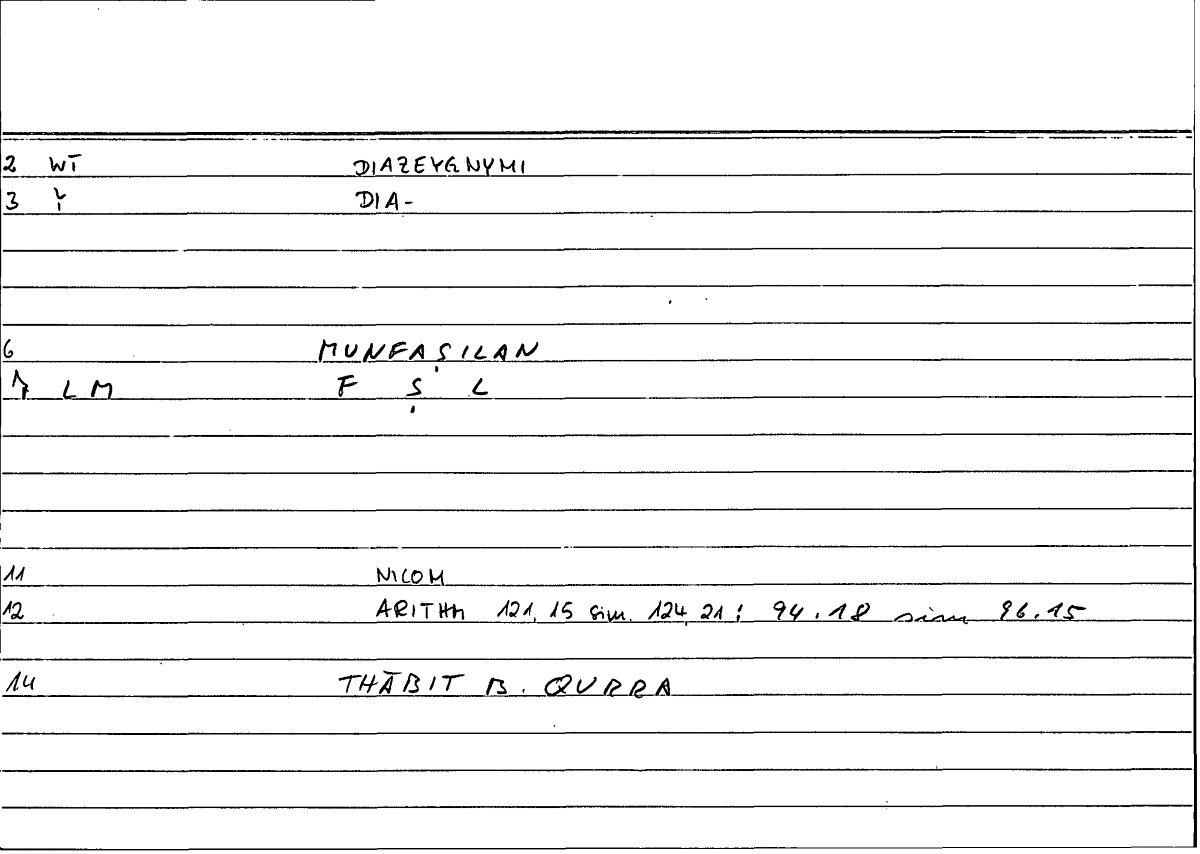 2 WT DIAZEYGNYMI
3 DIA-
6 MUNFAṢILAN
LM F Ṣ L
11 NICOM
12 ARITHM 121,15 sim. 124,21 : 94.18 sim 96.15
14 THĀBIT B. QURRA